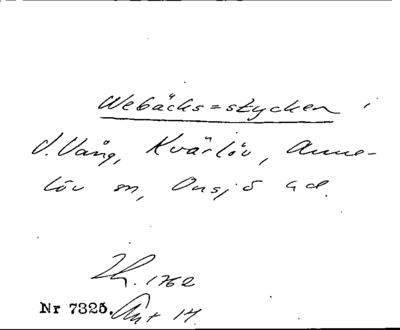 Webäcks=stycken i
V. Vång, Kvärlöv, Anne-
löv sn, Onsjö hd.
h. 1762
Nr 7325. Ant 14.